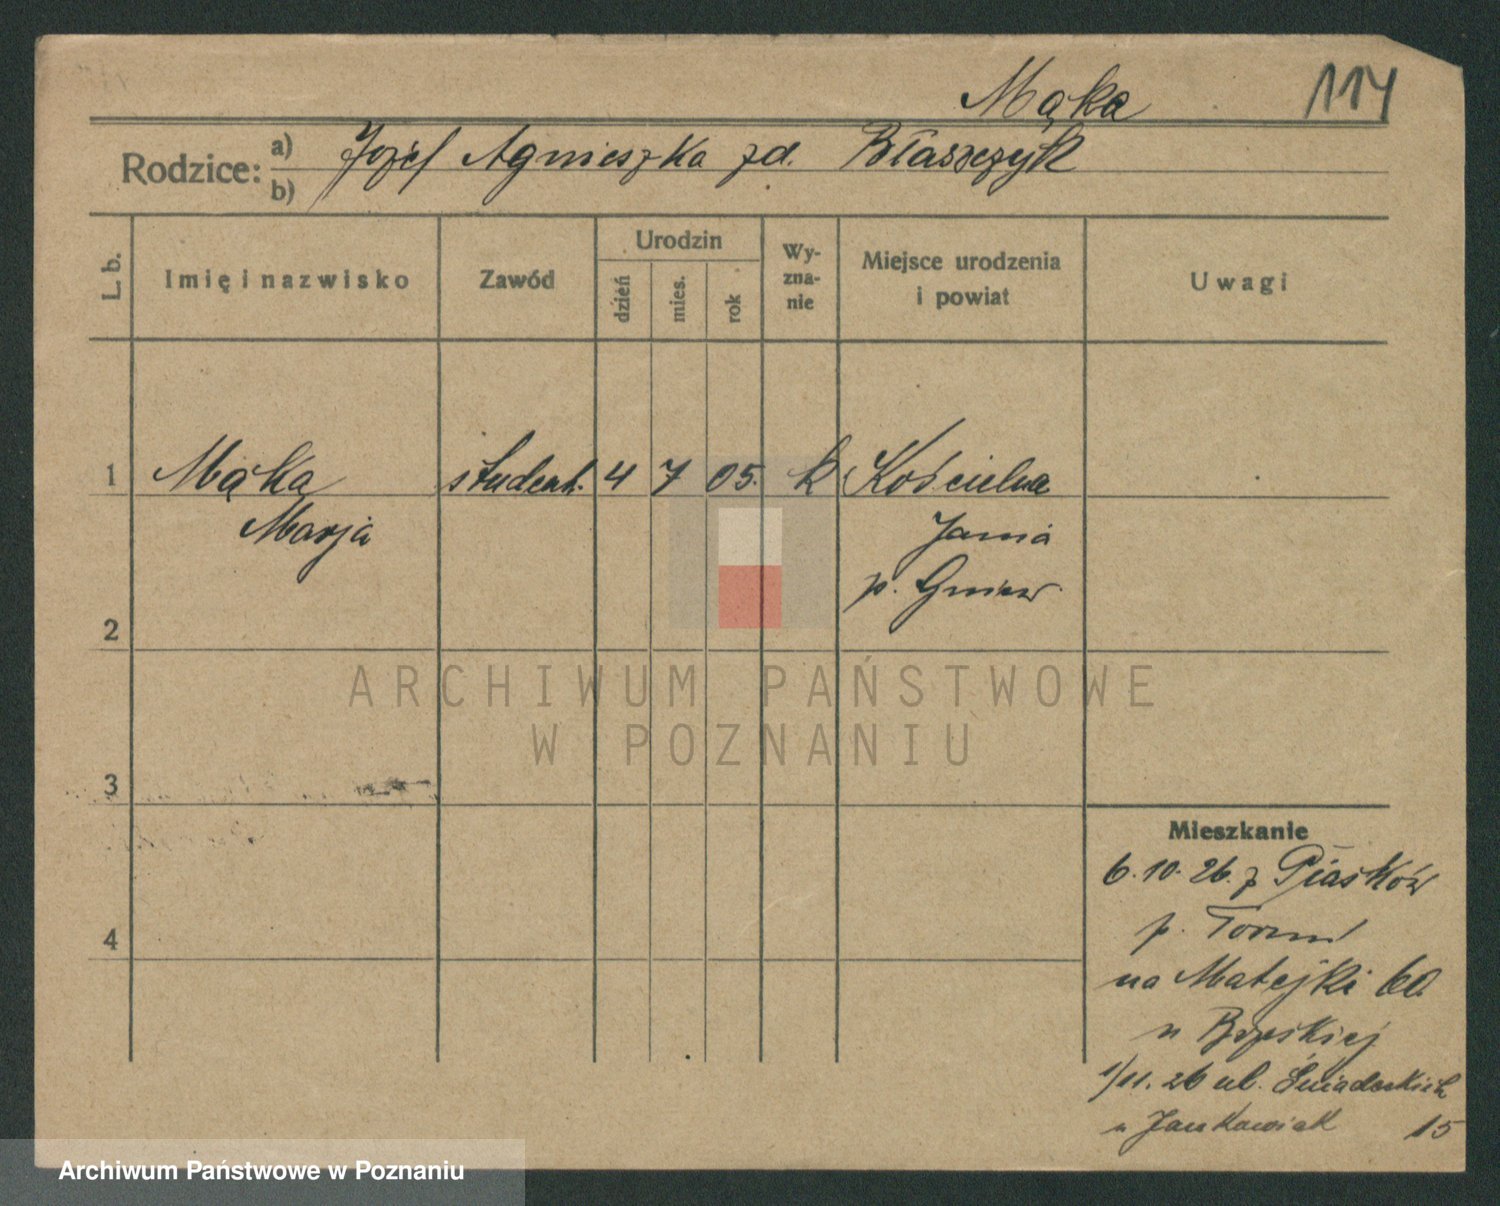 Mąka
114
Rodzice:
a) Józef Agnieszka zd. Błaszczyk
b)
L. b.
Imię i nazwisko
Zawód
Urodzin
dzień
mies.
rok
Wy-
zna-
nie
Miejsce urodzenia
i powiat
Uwagi
1 Mąka student. 4 7 05. k Kościelna
Marja Jania
p. Gniew
2
3
4
Mieszkanie
6.10.26. z Piasków
p. Toruń
na Matejki 60.
u
1/11. 26 ul. Śniadeckich
u Jankowiak 15
ARCHIWUM PAŃSTWOWE
W POZNANIU
Archiwum Państwowe w Poznaniu